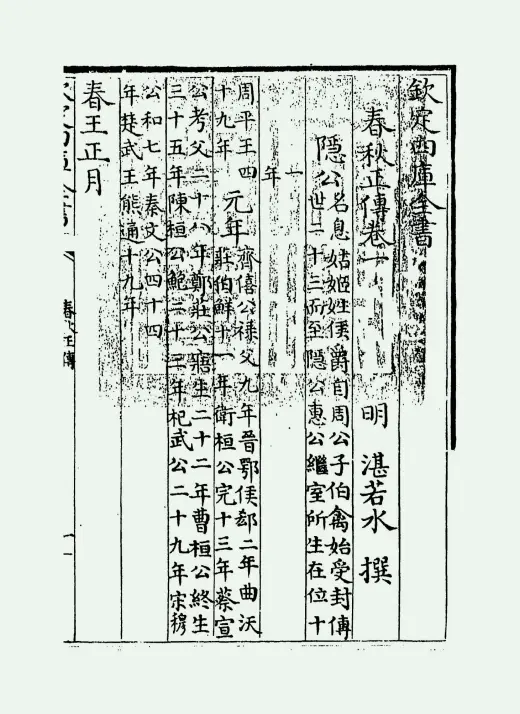 欽定四庫全書
春秋正傳卷一
明 湛若水 撰
隠公名息姑姬姓侯爵自周公子伯禽始受封傳
世二十三而至隠公惠公繼室所生在位十
一年
周平王四
十九年
元年齊僖公祿父九年晉鄂侯郄二年曲沃
莊伯鮮十一年衛桓公完十三年蔡宣
公考父二十八年鄭莊公寤生二十二年曹桓公終生
三十五年陳桓公鮑二十三年杞武公二十九年宋穆
公和七年秦文公四十四
年楚武王熊通十九年
春王正月
欽定四庫全書
春秋正傳
一